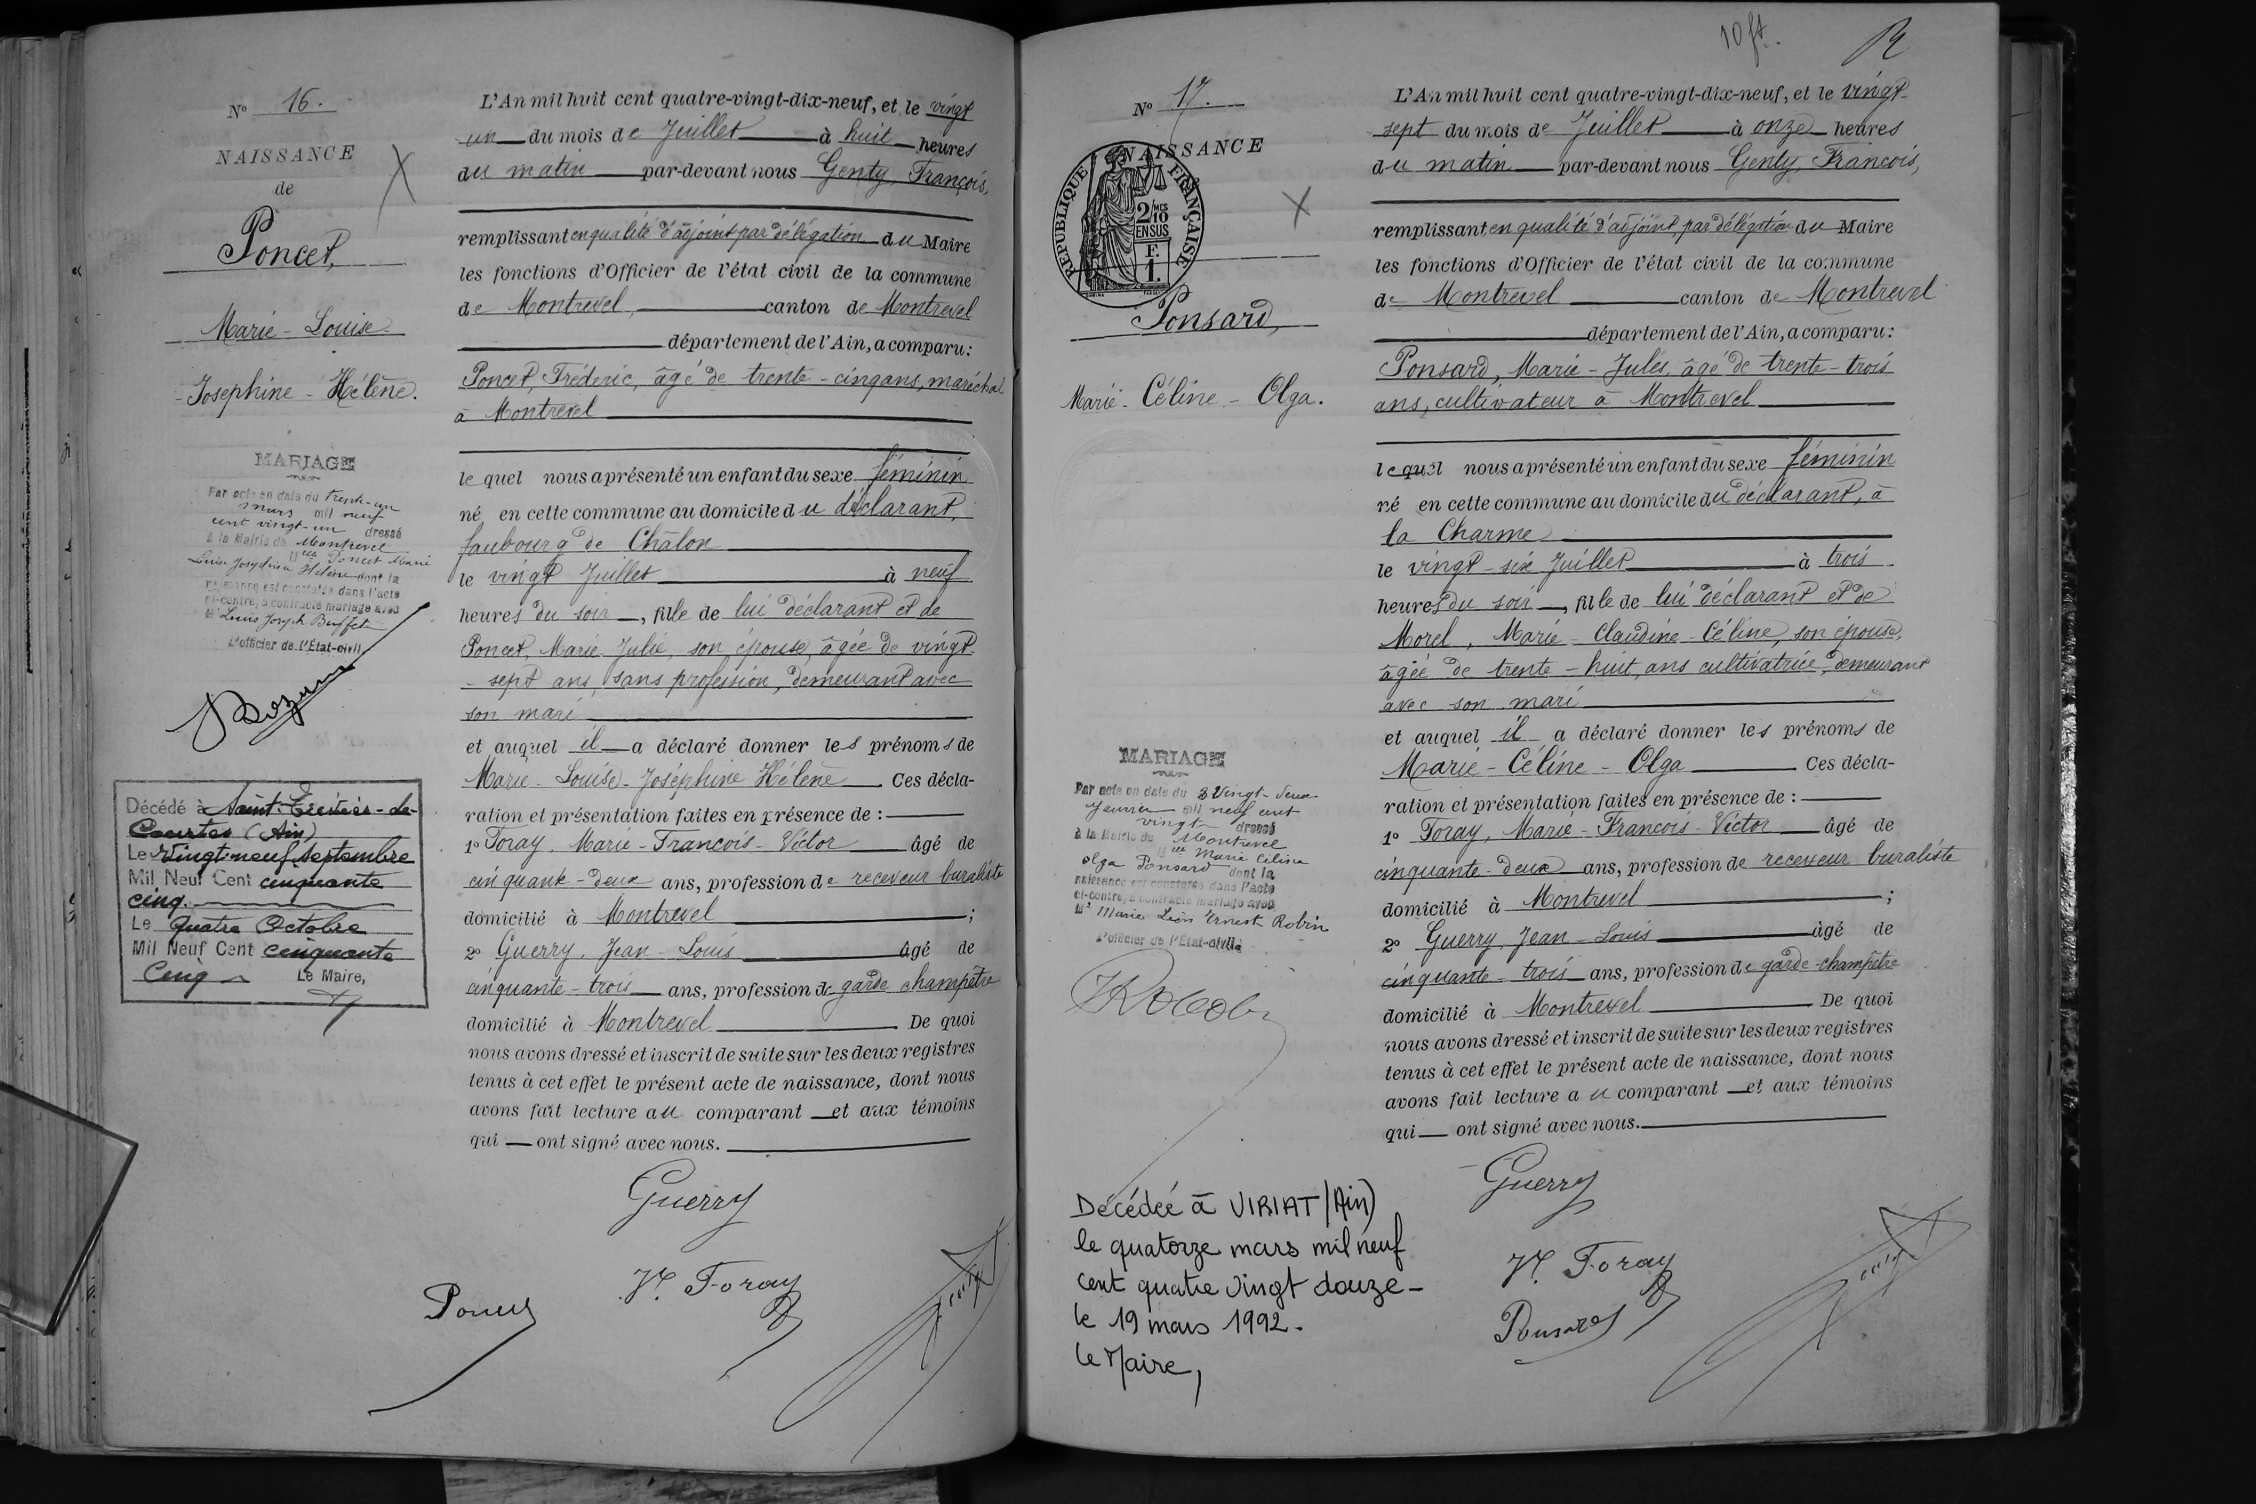 Nº 16.
NAISSANCE
de
Poncet,
Marie - Louise
Josephine - Hélène.
MARIAGE
Par acte en date du trente-un
mars mil neuf
cent vingt-un dressé
à la Mairie de Montrevel
Mlle Poncet Marie
Louise Joséphine Hélène dont la
naissance est constatée dans l'acte
ci-contre, a contracté mariage avec
Mr Louis Joseph Buffet
L'officier de l'État-civil,
Décédé à Saint-Trivier-de-
Courtes (Ain)
Le Vingt-neuf Septembre
Mil Neuf Cent cinquante
cinq.
Le Quatre Octobre
Mil Neuf Cent cinquante
Cinq Le Maire,
L'An mil huit cent quatre-vingt-dix-neuf, et le vingt
un du mois de Juillet à huit heures
du matin par-devant nous Genty, François,
remplissant en qualité d'adjoint par délégation du Maire
les fonctions d'Officier de l'état civil de la commune
de Montrevel, canton de Montrevel
département de l'Ain, a comparu:
Poncet, Fréderic, âgé de trente-cinq ans, maréchal
à Montrevel
le quel nous a présenté un enfant du sexe féminin
né en cette commune au domicile du déclarant,
faubourg de Châlon
le vingt Juillet à neuf
heures du soir, fille de lui déclarant et de
Poncet, Marie Julie, son épouse, âgée de vingt
- sept ans, sans profession, demeurant avec
son mari
et auquel il a déclaré donner les prénoms de
Marie - Louise - Joséphine Hélène Ces décla-
ration et présentation faites en présence de :
1º Foray, Marie - François - Victor âgé de
cinquante - deux ans, profession de receveur buraliste
domicilié à Montrevel ;
2º Guerry, Jean - Louis âgé de
cinquante - trois ans, profession de garde champêtre
domicilié à Montrevel De quoi
nous avons dressé et inscrit de suite sur les deux registres
tenus à cet effet le présent acte de naissance, dont nous
avons fait lecture au comparant et aux témoins
qui ont signé avec nous.
Guerry
Vr. Foray
Poncet
Genty
10 ft.
Nº 17.
NAISSANCE
REPUBLIQUE FRANÇAISE
2/10 MES
EN SUS
F.
1.
Ponsard,
Marie - Céline - Olga.
MARIAGE
Par acte en date du Vingt-deux
Janvier mil neuf cent
vingt dressé
à la Mairie de Montrevel
Mlle Marie Céline
Olga Ponsard dont la
naissance est constatée dans l'acte
ci-contre, a contracté mariage avec
Mr Marie Léon Ernest Robin
L'officier de l'État-civil,
Décédée à VIRIAT (Ain)
le quatorze mars mil neuf
cent quatre vingt douze -
le 19 mars 1992.
Le Maire,
L'An mil huit cent quatre-vingt-dix-neuf, et le vingt-
sept du mois de Juillet à onze heures
du matin par-devant nous Genty, François,
remplissant en qualité d'adjoint, par délégation du Maire
les fonctions d'Officier de l'état civil de la commune
de Montrevel canton de Montrevel
département de l'Ain, a comparu:
Ponsard, Marie - Jules, âgé de trente - trois
ans, cultivateur à Montrevel
lequel nous a présenté un enfant du sexe féminin
né en cette commune au domicile du déclarant, à
la Charme
le vingt - six Juillet à trois
heures du soir, fille de lui déclarant et de
Morel, Marie - Claudine - Céline, son épouse,
âgée de trente - huit ans cultivatrice, demeurant
avec son mari
et auquel il a déclaré donner les prénoms de
Marie - Céline - Olga Ces décla-
ration et présentation faites en présence de :
1º Foray, Marie - François - Victor âgé de
cinquante - deux ans, profession de receveur buraliste
domicilié à Montrevel ;
2º Guerry, Jean - Louis âgé de
cinquante - trois ans, profession de garde - champêtre
domicilié à Montrevel De quoi
nous avons dressé et inscrit de suite sur les deux registres
tenus à cet effet le présent acte de naissance, dont nous
avons fait lecture au comparant et aux témoins
qui ont signé avec nous.
Guerry
Vr. Foray
Ponsard
Genty